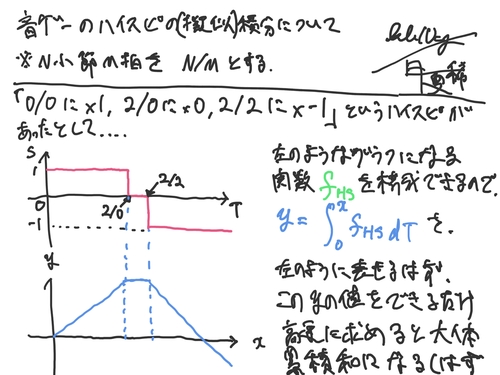 音ゲーのハイスピの(擬似)積分について
※N小節M拍を N/M とする.
「0/0に×1, 2/0に×0, 2/2に×-1」というハイスピが
あったとして....
S
1
0
-1
2/0
2/2
T
y
x
左のようなグラフになる
関数 fHS を構成できるので,
y = ∫0x fHS dT を.
左のように表せるはず.
このyの値をできるだけ
高速に求めると大体
累積和になる(はず
累積